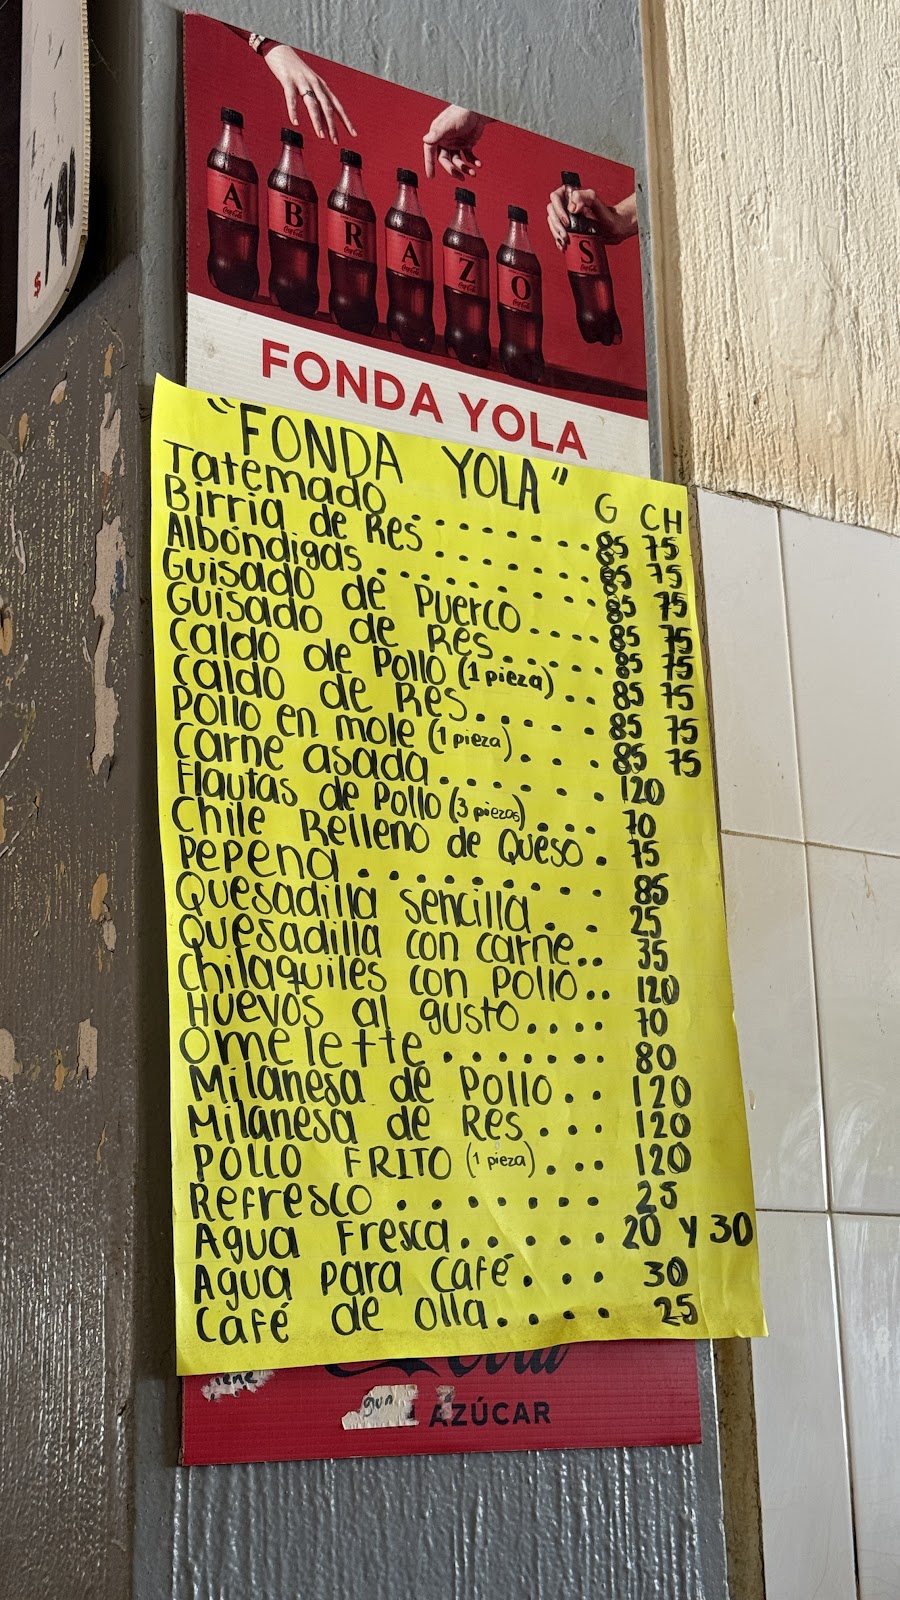 $ 14
A B R A Z O S
FONDA YOLA
"FONDA YOLA" G CH
Tatemado...... 85 75
Birria de Res...... 85 75
Albóndigas......... 85 75
Guisado de Puerco.... 85 75
Guisado de Res..... 85 75
Caldo de Pollo (1 pieza).. 85 75
Caldo de Res..... 85 75
Pollo en mole (1 pieza).... 85 75
Carne asada....... 120
Flautas de Pollo (3 piezas).... 70
Chile Relleno de Queso. 75
Pepena......... 85
Quesadilla sencilla.. 25
Quesadilla con carne.. 35
Chilaquiles con Pollo.. 120
Huevos al gusto.... 70
Omelette....... 80
Milanesa de Pollo.. 120
Milanesa de Res... 120
POLLO FRITO (1 pieza)... 120
Refresco....... 25
Agua Fresca...... 20 y 30
Agua para Café.... 30
Café de olla.... 25
AZÚCAR